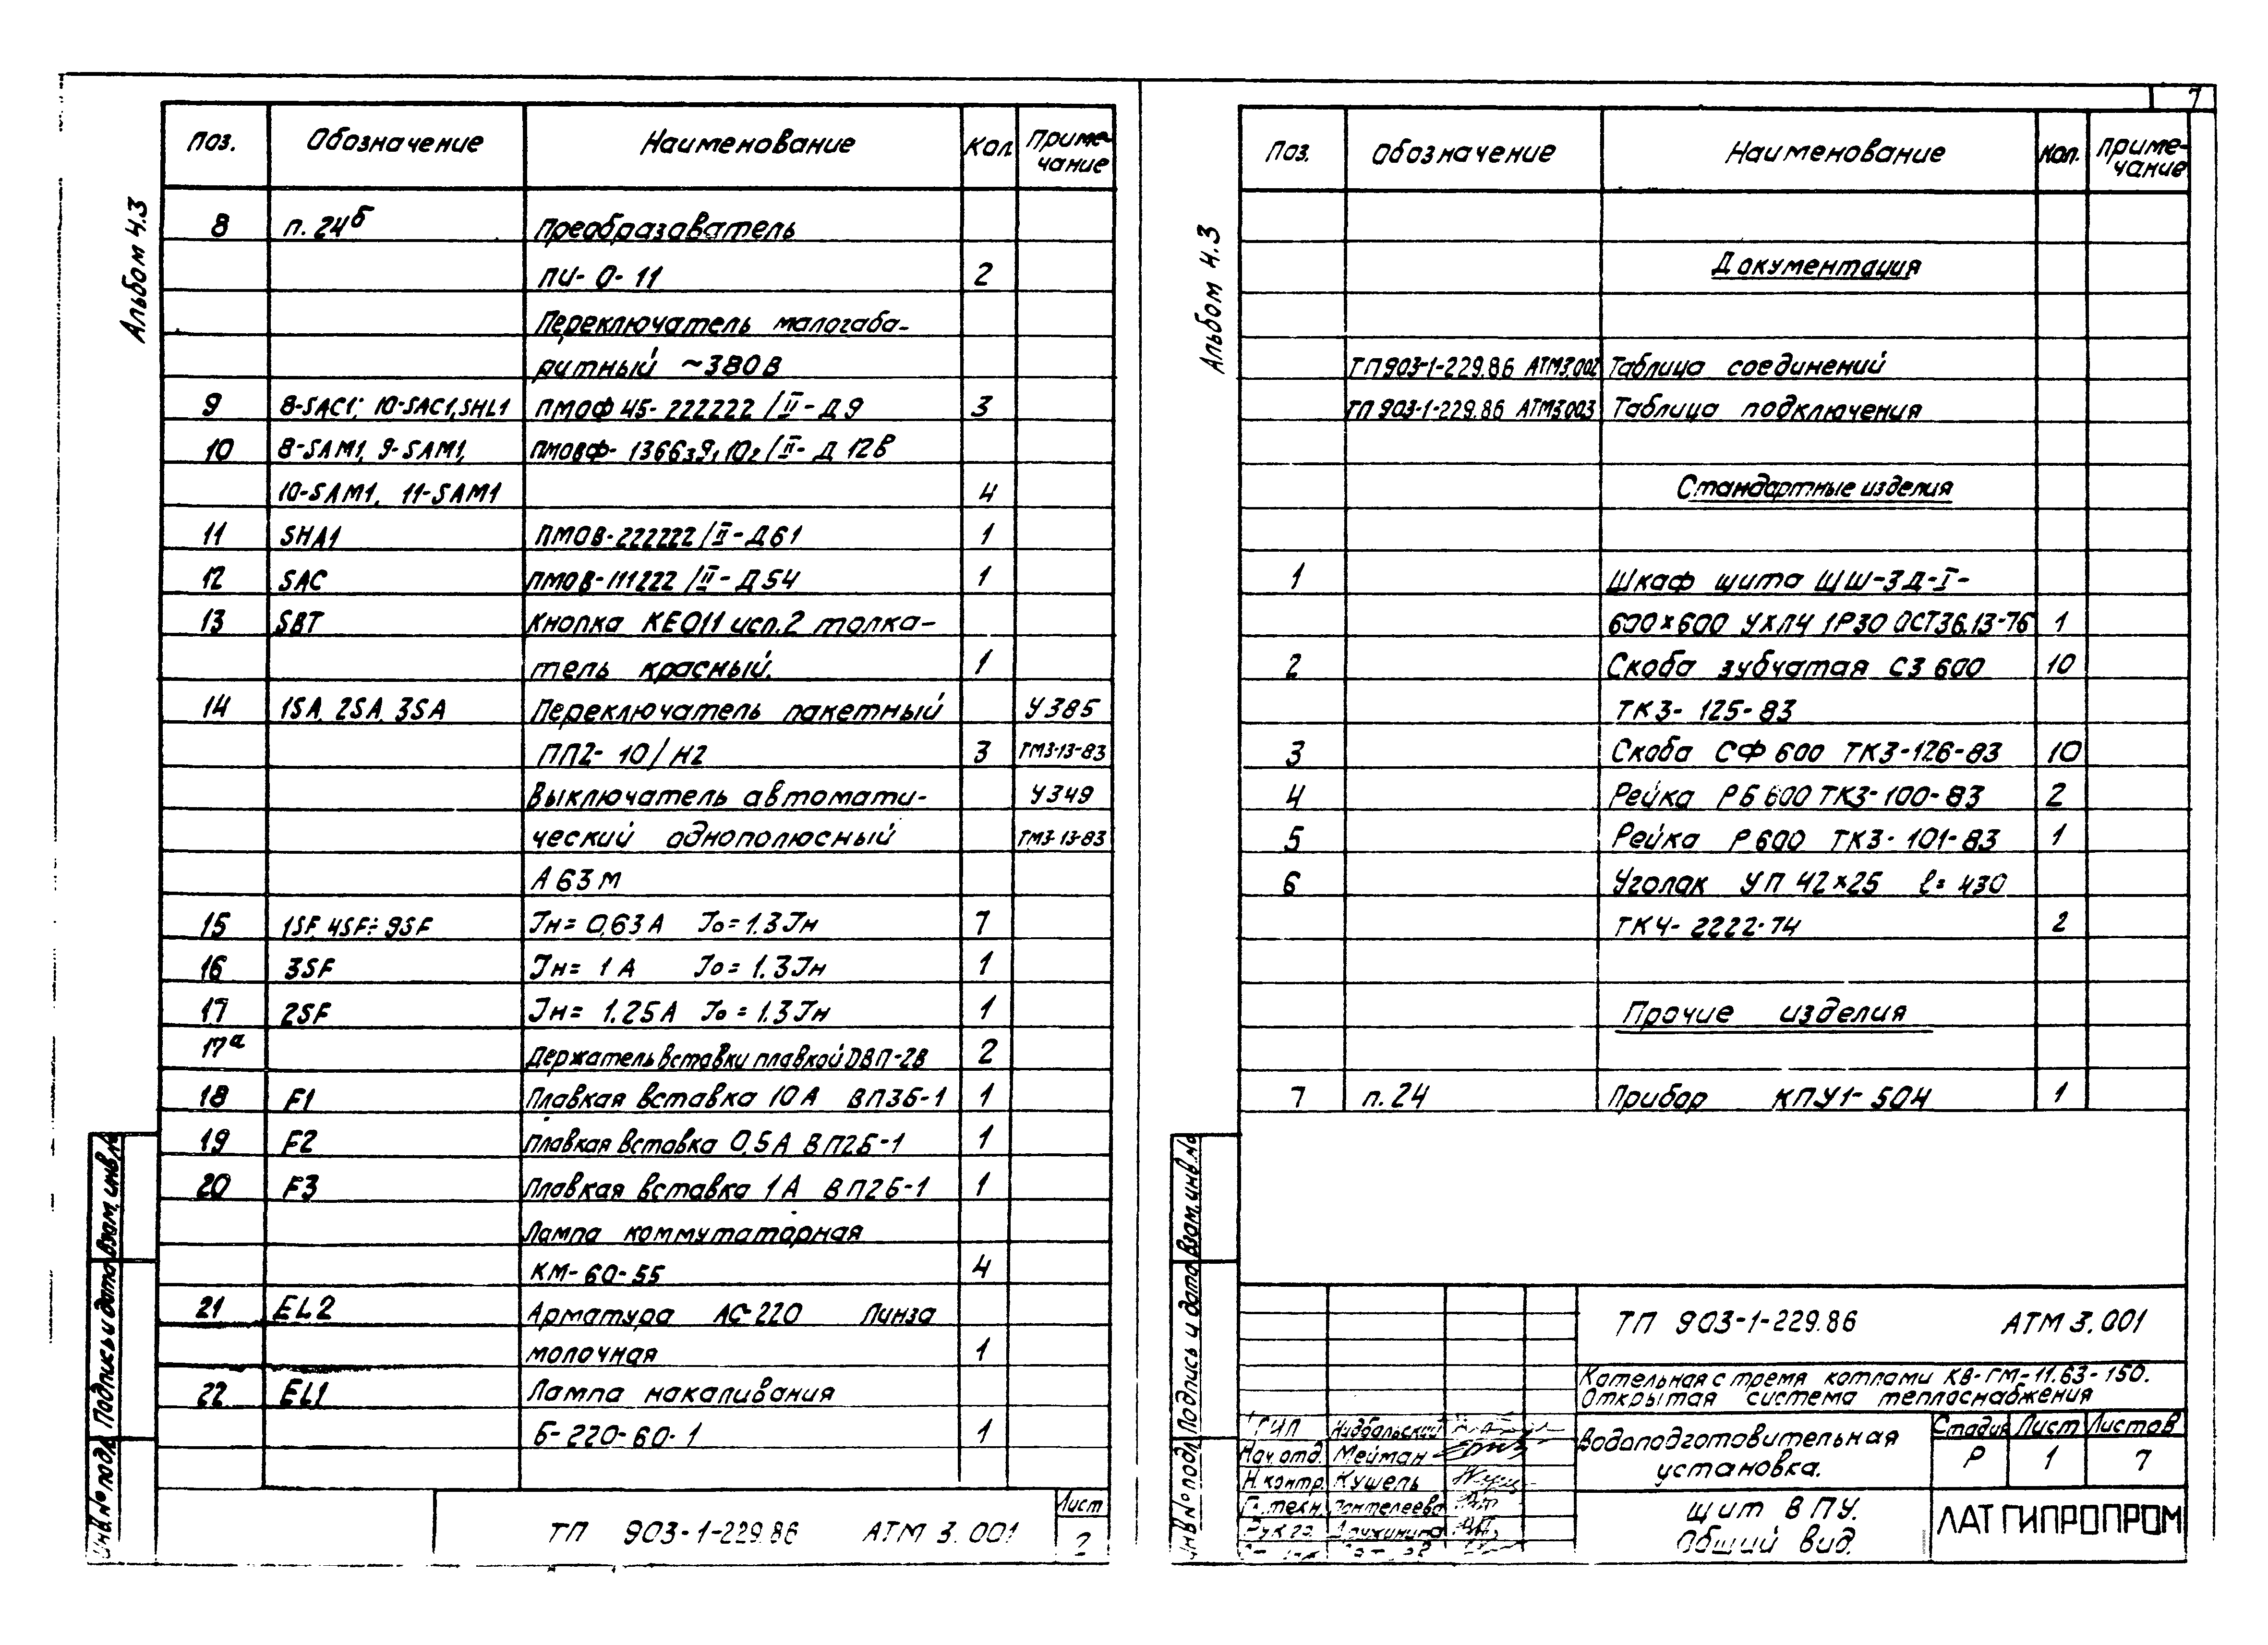 7
Альбом 4.3
Поз. Обозначение Наименование Кол Приме-
чание
8 п. 24б Преобразаватель
ПИ-0-11 2
Переключатель малогаба-
ритный ~380В
9 8-SAC1; 10-SAC1, SHL1 ПМОФ45-222222/II-Д9 3
10 8-SAM1, 9-SAM1, ПМОВФ- /II-Д12В
10-SAM1, 11-SAM1 4
11 SHA1 ПМОВ-222222/II-Д61 1
12 SAC ПМОВ-111222/II-Д54 1
13 SBT Кнопка КЕ011 исп.2 толка-
тель красный. 1
14 1SA, 2SA, 3SA Переключатель пакетный У385
ПП2-10/Н2 3 ТМ3-13-83
Выключатель автомати- У349
ческий однополюсный ТМ3-13-83
А63М
15 1SF, 4SF÷9SF Jн= 0,63А Jо=1.3Jн 7
16 3SF Jн= 1А Jо=1.3Jн 1
17 2SF Jн= 1.25А Jо=1.3Jн 1
17а Держатель вставки плавкой DВП-2В 2
18 F1 Плавкая вставка 10А ВП3Б-1 1
19 F2 Плавкая вставка 0,5А ВП2Б-1 1
20 F3 Плавкая вставка 1А ВП2Б-1 1
Лампа коммутаторная
КМ-60-55 4
21 EL2 Арматура АС-220 Линза
молочная 1
22 EL1 Лампа накаливания
Б-220-60-1 1
Взам. инв. №
Подпись и дата
Инв № подл
ТП 903-1-229.86 АТМ 3.001
Лист
2
Альбом 4.3
Поз. Обозначение Наименование Кол. Приме-
чание
Документация
ТП903-1-229.86 АТМ3.002 Таблица соединений
ТП903-1-229.86 АТМ3.003 Таблица подключения
Стандартные изделия
1 Шкаф щита ЩШ-3Д-I-
600×600 УХЛ4 1Р30 ОСТ36.13-76 1
2 Скоба зубчатая СЗ 600 10
ТК3-125-83
3 Скоба СФ 600 ТК3-126-83 10
4 Рейка РБ 600 ТК3-100-83 2
5 Рейка Р600 ТК3-101-83 1
6 Уголак УП 42×25 ℓ= 430
ТК4-2222-74 2
Прочие изделия
7 п.24 Прибор КПУ1-504 1
Взам. инв. №
Подпись и дата
Инв № подл
ТП 903-1-229.86 АТМ 3.001
Котельная с тремя котлами КВ-ГМ-11.63-150.
Открытая система теплоснабжения
ГИП
Нач.отд. Мейман
Н.контр. Кушель
Гл.техн. Пантелеева
Рук.гр. Дружинина
Водоподготовительная
установка.
Стадия Лист Листов
Р 1 7
Щит ВПУ.
Общий вид.
ЛАТГИПРОПРОМ